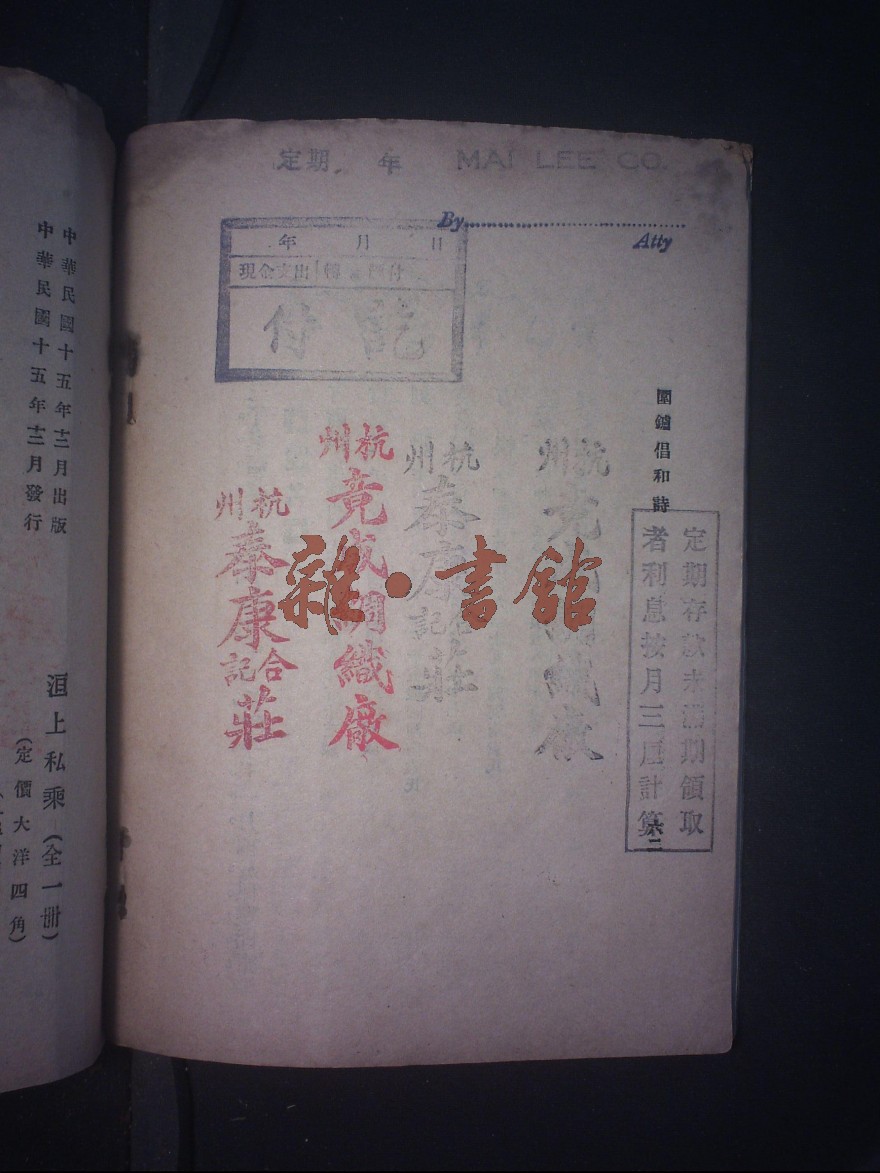 定期 年 MAI LEE CO.
By
Atty
年 月 日
現金支出 轉 付
付 訖
圍鑪倡和詩
二
定期存款未滿期領取
者利息按月三厘計算
杭州
杭州
泰康
合記
莊
杭州
竟成綢織廠
杭州
泰康
合記
莊
雜·書館
中華民國十五年十二月出版
中華民國十五年十二月發行
洹上私乘(全一冊)
(定價大洋四角)